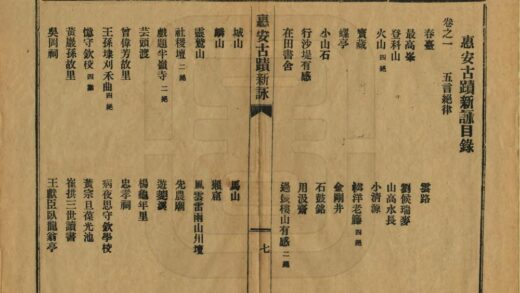 惠安古蹟新詠目錄
卷之一 五言絕律
春臺
雲路
最高峯
劉候瑞麥
登科山
山高水長
火山 四絕
小清源
寶藏
韓洋老藤 四絕
蝶亭
金剛井
小山石
石鼓銘
行沙堤有感
用汲齋
在田書舍
過振樓山有感 二絕
惠安古蹟新詠
七
城山
馬山
麟山
靈鷲山
風雲雷雨山川壇
社稷壇 二絕
先農廟
戲題半嶺寺 二絕
遊獅嶼
芸頭渡
楊龜年里
曾偉芳故里
忠孝祠
王孫埭刈禾曲 四絕
病夜思守欽學校
憶守欽校 四絕
黃宗旦葆光池
黃嚴孫故里
崔拱三世讀書
吳岡祠
王獻臣臥龍翁亭